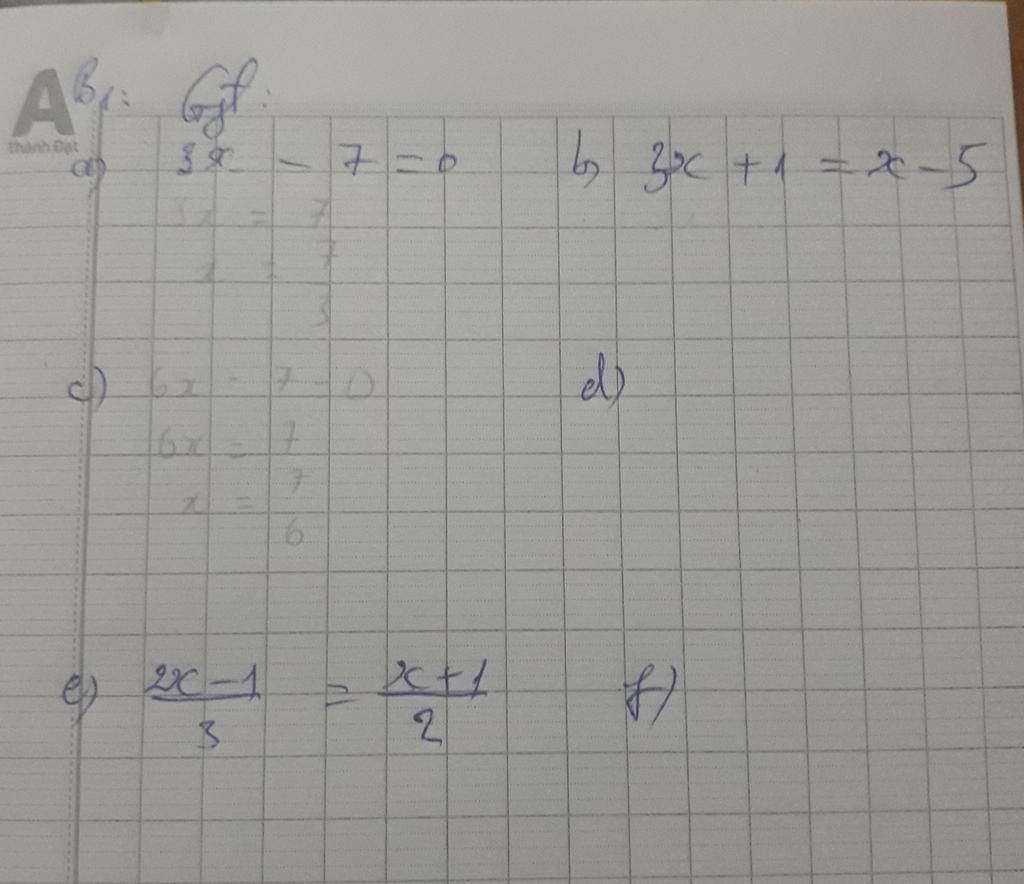 A
Thành Đạt
B1: Gpt:
a) 3x - 7 = 0 b) 3x + 1 = x - 5
3x = 7
= 7
3
c) 6x - 7 = 0 d)
6x = 7
x = 7
6
e) 2x - 1 / 3 = x + 1 / 2 f)